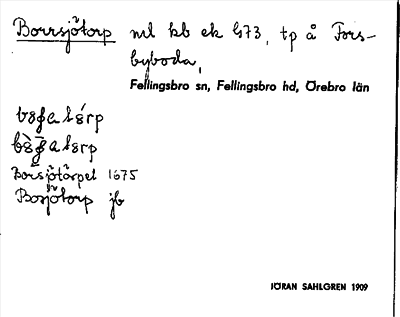 Borrsjötorp ml kb ek 473, tp å Fors-
byboda,
Fellingsbro sn, Fellingsbro hd, Örebro län
Borsjötårpet 1675
Bosjötorp jb
JÖRAN SAHLGREN 1909